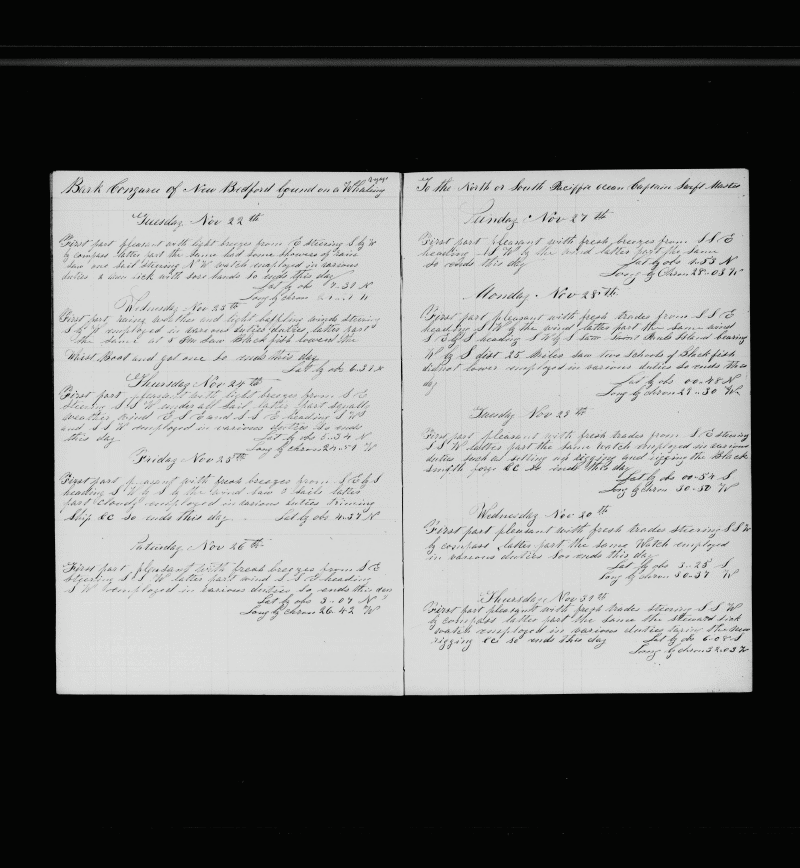 Bark Congaree of New Bedford bound on a Whaling
Tuesday Nov 22th
First part pleasant with light breezes from E steering S by W
by compass latter part the same had some showers of rain
saw one sail steering N W watch employed in various
duties 2 men sick with sore hands so ends this day
Lat by obs 7-31 N
Long by chron
Wednesday Nov 23th
First part rainy weather and light baffling winds steering
S by W employed in various duties latter part
the same at 5 Pm saw Black fish lowerd the
Waist Boat and got one so ends this day
Lat by obs 6-31 N
Thursday Nov 24th
First part pleasant with light breezes from S E
steering S S W under all sail latter part squally
weather wind E S E and S S E heading S W S
and S S W employed in various duties so ends
this day Lat by obs 5-34 N
Long by chron 24-51 W
Friday Nov 25th
First part pleasant with fresh breezes from S E by S
heading S W by S by the wind saw 2 sails latter
part cloudy employed in various duties triming
Ship &c so ends this day Lat by obs 4-37 N
Saturday Nov 26th
First part pleasant with fresh breezes from S E
steering S S W latter part wind S S E heading
S W employed in various duties so ends this day
Lat by obs 3-07 N
Long by chron 26 42 W
To the North or South Paciffic ocean Captain Swift Master
Sunday Nov 27th
First part pleasant with fresh breezes from S S E
heading S W by the wind latter part the same
so ends this day Lat by obs 1-53 N
Long by Chron 28-03 W
Monday Nov 28th
First part pleasant with fresh trades from S S E
heading S W by the wind latter part the same wind
S E by S heading S W by S saw Island bearing
W by S dist 25 Miles saw two schools of Black fish
did not lower employed in various duties so ends this
day Lat by obs 00-48 N
Long by chron 29-30 W
Tuesday Nov 29th
First part pleasant with fresh trades from S E steering
S S W latter part the same watch employed in various
duties such as setting up rigging and rigging the Black
smyth forge &c so ends this day
Lat by obs 00-54 S
Long by chron 30-30 W
Wednesday Nov 30th
First part pleasant with fresh trades steering S S W
by compass latter part the same Watch employed
in various duties so ends this day
Lat by obs 3-25 S
Long by chron 30-37 W
Thursday Nov 31th
First part pleasant with fresh trades steering S S W
by compass latter part the same the steward sick
watch employed in various duties taring the
rigging &c so ends this day Lat by obs 6-08 S
Long by chron 32-03 W